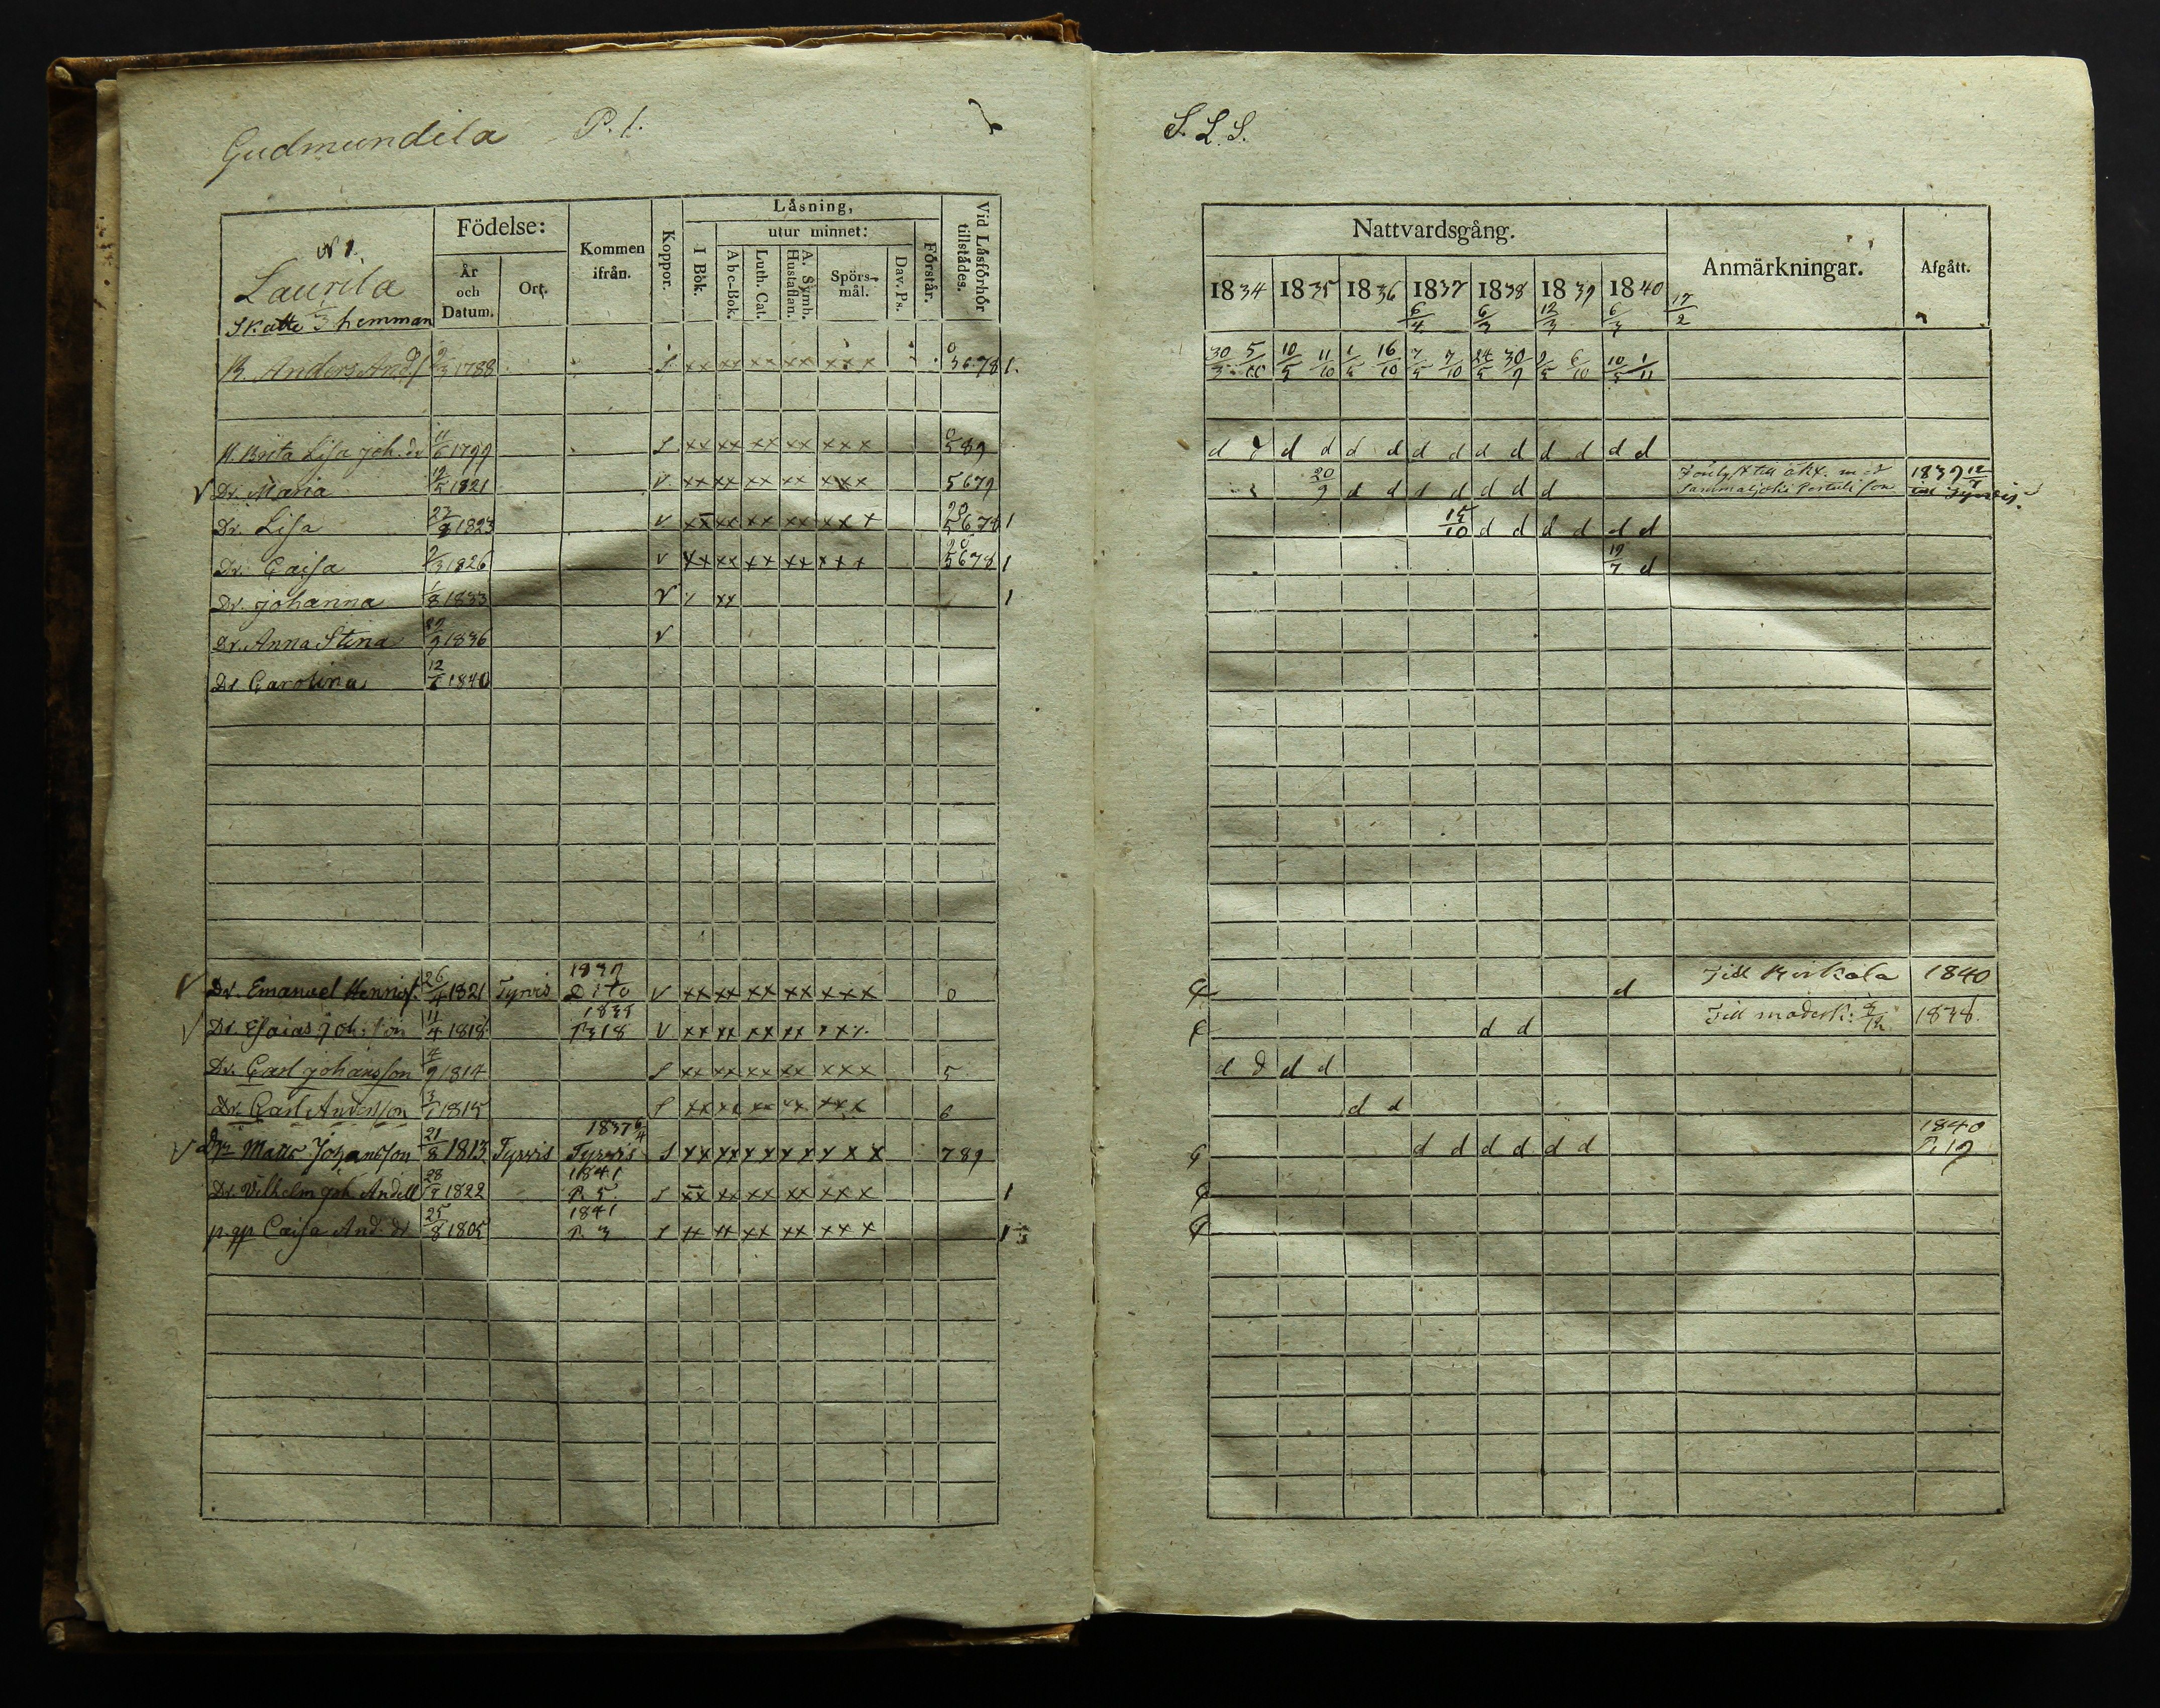 Gudmundila P. 1.
N 1.
Laurila
Skatte 1/3 hemman
Födelse:
År och Datum.
Ort.
Kommen ifrån.
Koppor.
Låsning,
I Bok.
utur minnet:
Abc-Bok.
Luth. Cat.
A. Symb. Hustaflan.
Spörs-mål.
Dav. Ps.
Förstår.
Vid Låsförhör tillstådes.
B. Anders And.s 9/3 1788 S xx xx xx xx xxx 0 3678 1.
H. Brita Lisa Joh. dr 11/6 1799 S xx xx xx xx xxx 0 589
V Dr. Maria 19/5 1821 V xx xx xx xx xxx 5679
Dr. Lisa 27/9 1823 V xx xx xx xx xxx 5678 1
Dr. Caisa 2/3 1826 V xx xx xx xx xxx 5678 1
Dr. Johanna 1/8 1833 V xx 1
Dr. Anna Stina 1836 V
Dr. Carolina 12/6 1840
1839
V Dr. Emanuel Hennis. 26/4 1821 Tyrvis Dito V xx xx xx xx xxx 0
V Dr. Esaias Joh:son 11/4 1818 P. 18 V xx xx xx xx xxx
Dr. Carl Johansson 4/9 1814 S xx xx xx xx xxx 5
Dr. Carl Andersson 3/1 1815 S xx xx xx xx xxx 6
1837 6/4
V Matts Johansson 21/8 1813 Tyrvis Tyrvis S xx xx xx xx xxx 789
1841
Dr. Vilhelm Joh. Andell 28/9 1822 P. 5. S xx xx xx xx xxx 1
1841
p. gp Caisa And. dr 25/8 1805 P. 3 S xx xx xx xx xxx 1
S. L. S.
Nattvardsgång.
Anmärkningar.
Afgått.
1834 1835 1836 1837 1838 1839 1840
6/4 6/3 12/3 6/3 17/2
30/3 5/10 10/5 11/10 1/5 16/10 7/5 7/10 24/5 30/9 9/5 6/10 10/5 1/11
d d d d d d d d d d d d d d
20/9 d d d d d d d 1839 12/4
15/10 d d d d d d
19/7 d
d Till Birkala 1840
d d Till moderk: 1838.
d d d d
d d
d d d d d d 1840 P. 19